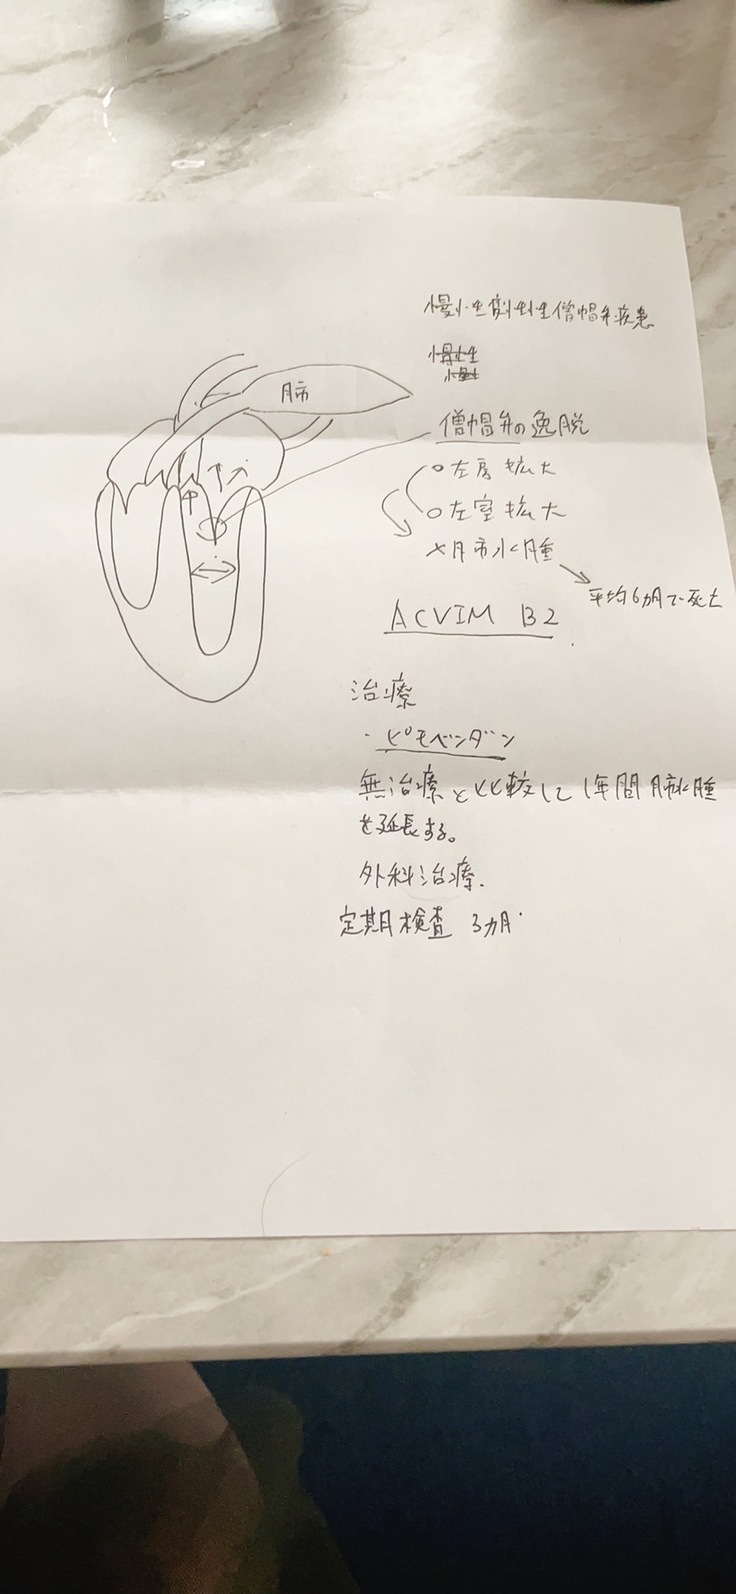 慢性変性性僧帽弁疾患
慢性
慢性
肺
僧帽弁の逸脱
○左房拡大
○左室拡大
×肺水腫
平均6カ月で死亡
ACVIM B2
治療
・ピモベンダン
無治療と比較して1年間肺水腫
を延長する。
外科治療.
定期検査 3カ月